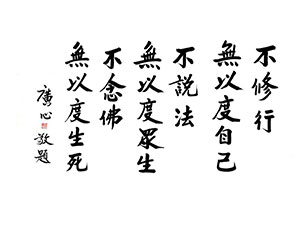 不修行
無以度自己
不説法
無以度眾生
不念佛
無以度生死
廣心敬題